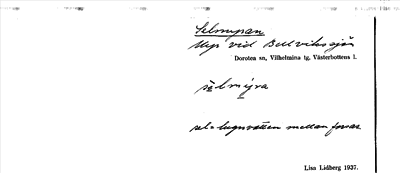 Selmyran
Myr vid Bellvikssjön
Dorotea sn, Vilhelmina tg, Västerbottens l.
sèlmýra
sel = lugnvatten mellan forsar
Lisa Lidberg 1937.